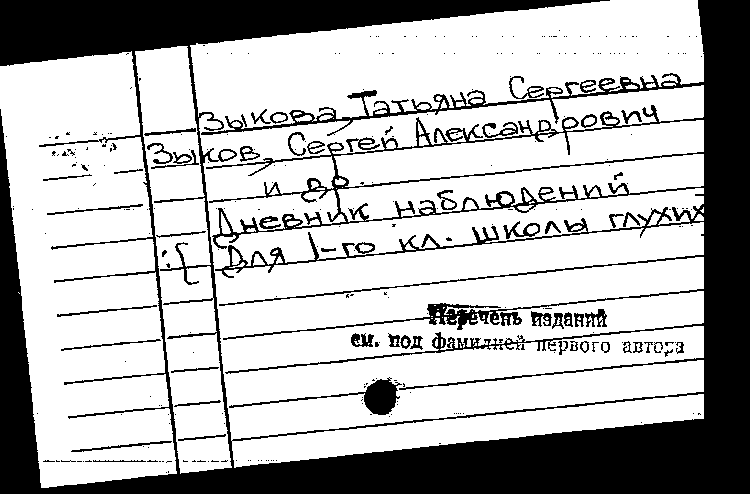 Зыкова, Татьяна Сергеевна
Зыков, Сергей Александрович
и др.
Дневник наблюдений
:{ Для 1-го кл. школы глухих
Перечень изданий
см. под фамилией первого автора